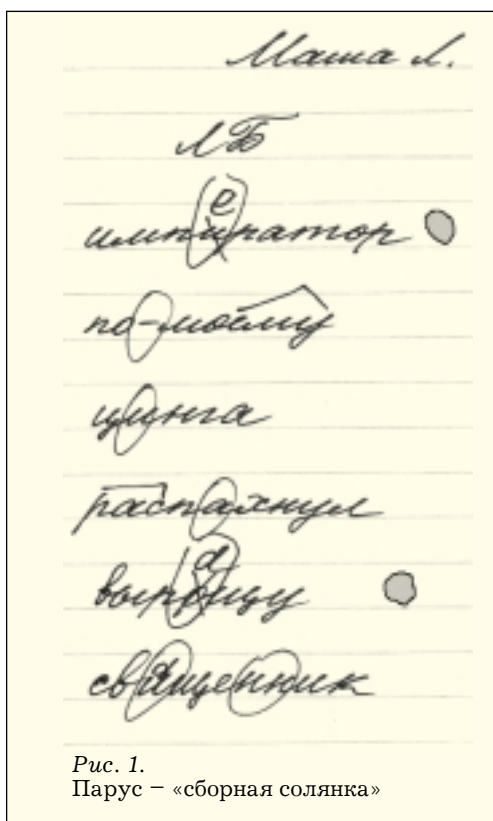 Маша Л.
ЛБ
император
по-моему
цинга
распахнул
выращу
священник
Рис. 1.
Парус – «сборная солянка»